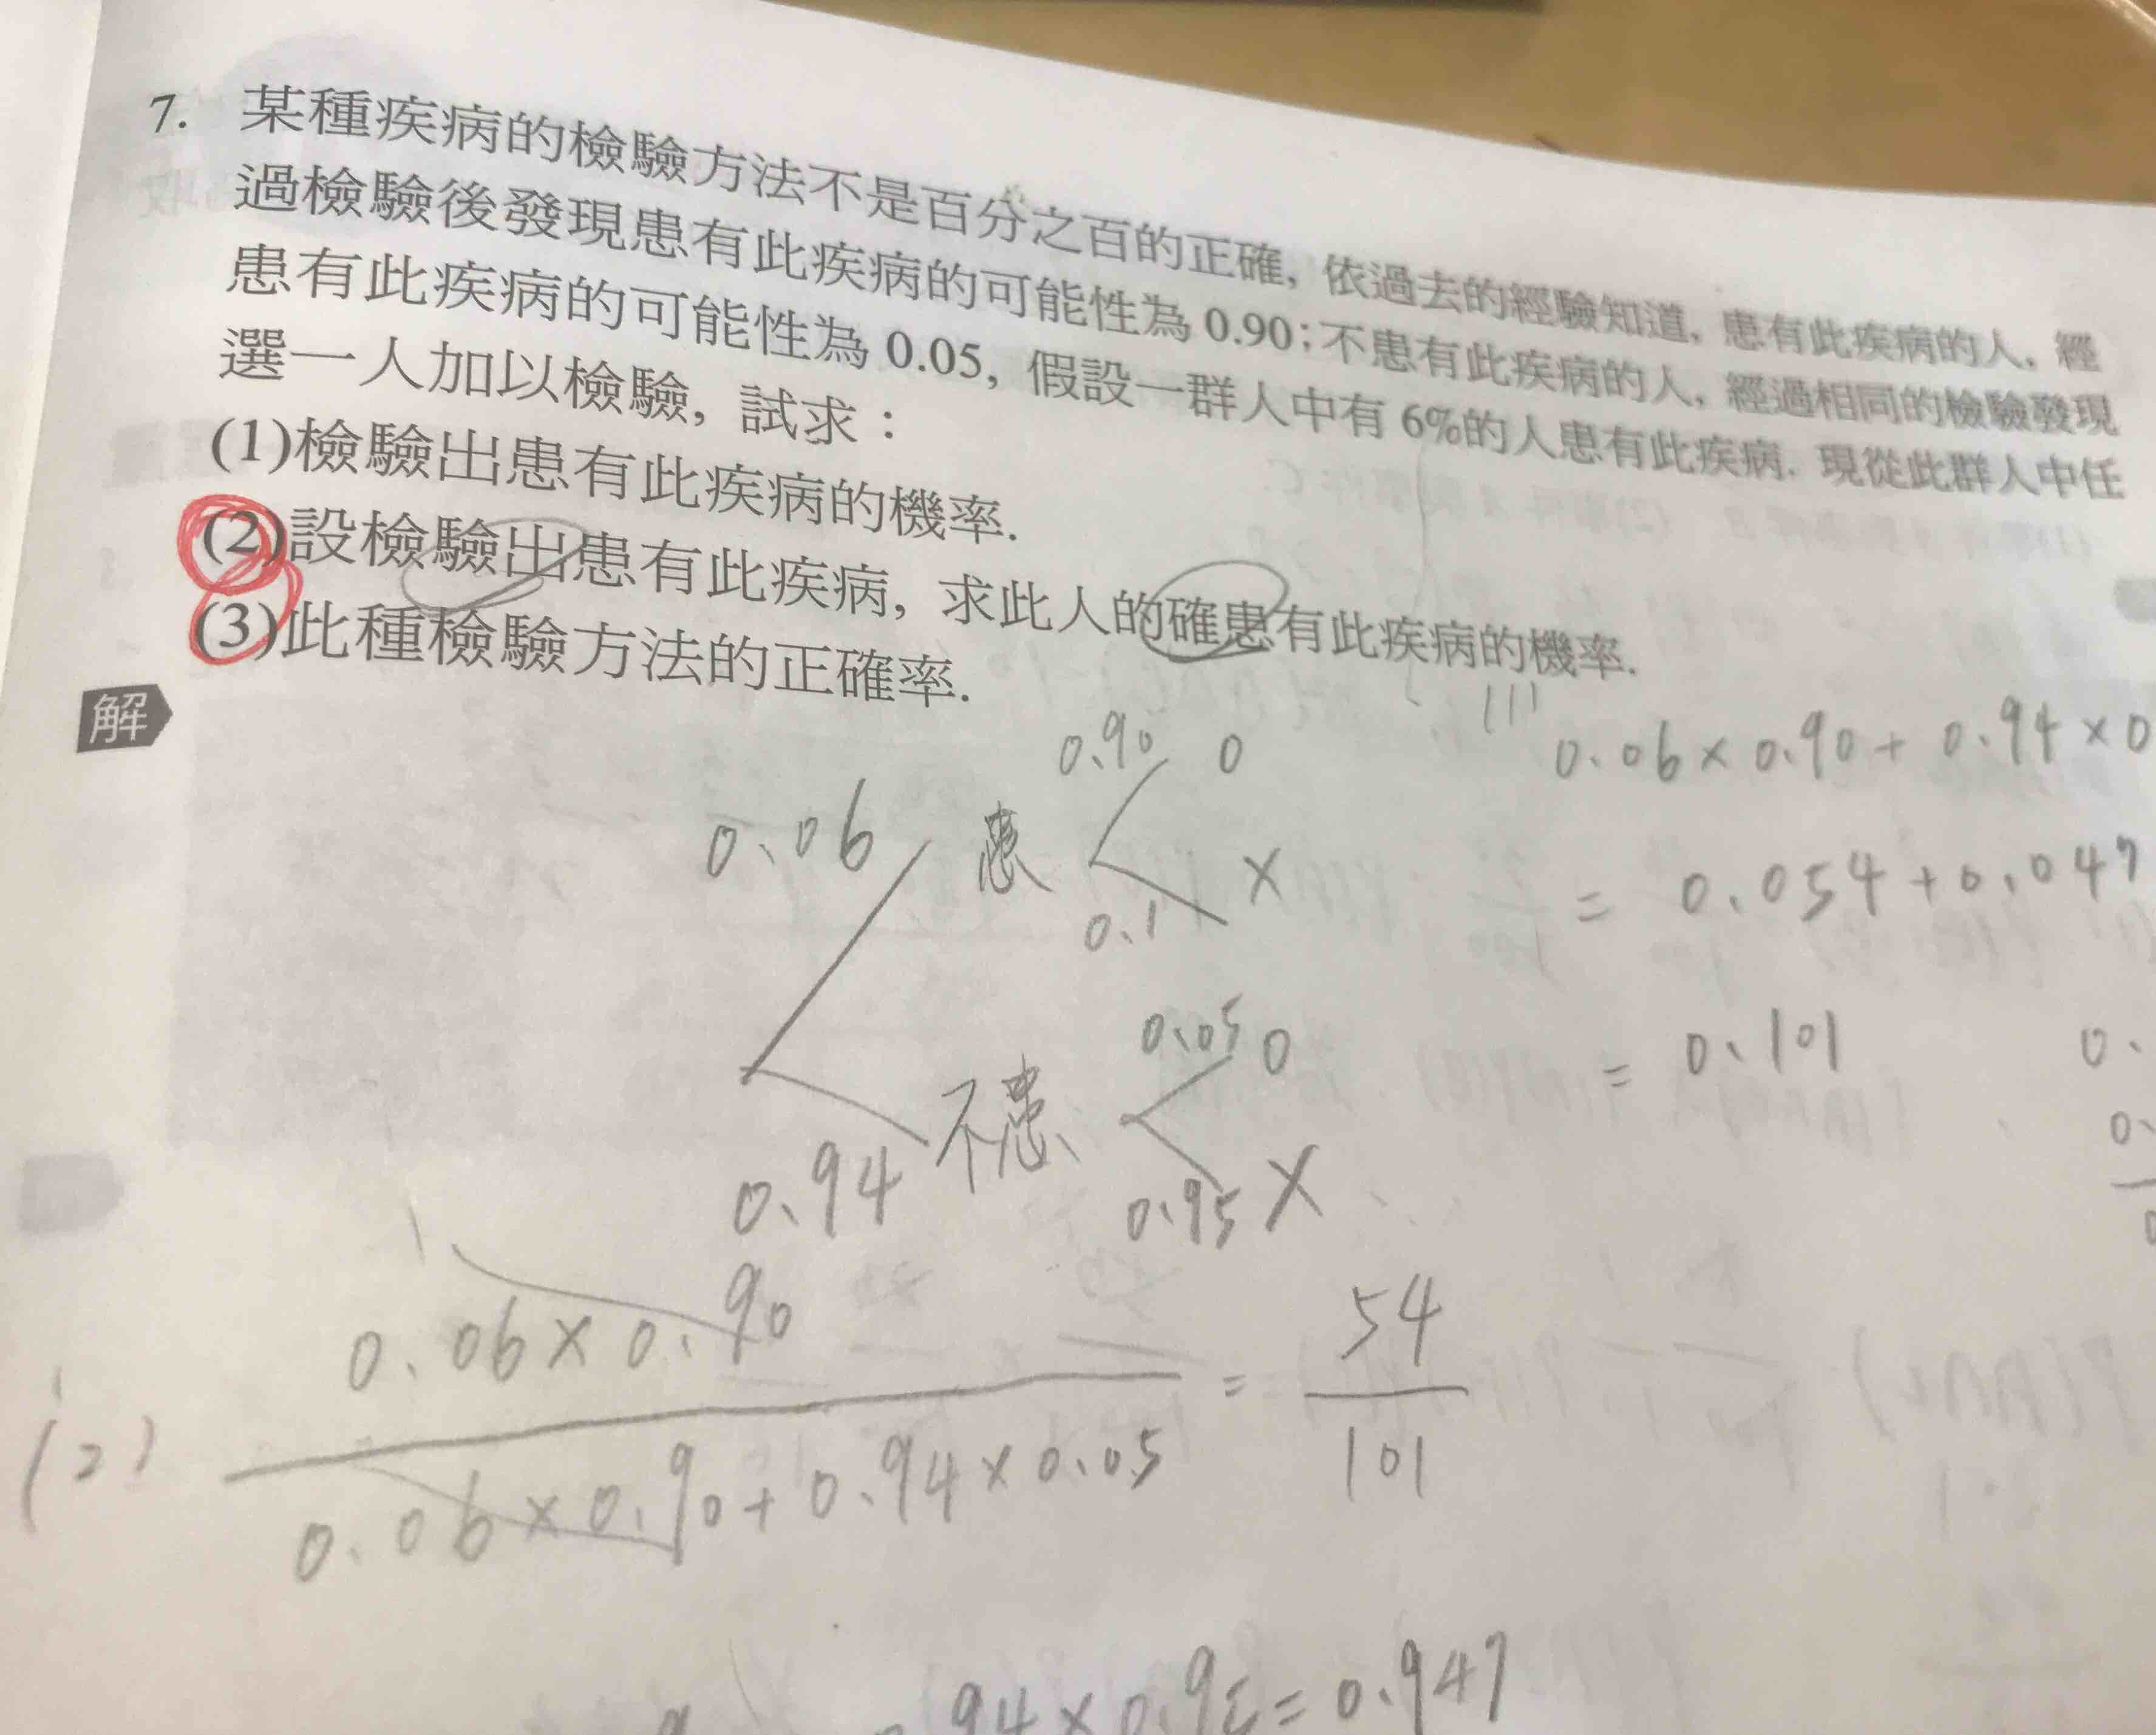 7. 某種疾病的檢驗方法不是百分之百的正確, 依過去的經驗知道, 患有此疾病的人, 經
過檢驗後發現患有此疾病的可能性為 0.90; 不患有此疾病的人, 經過相同的檢驗發現
患有此疾病的可能性為 0.05, 假設一群人中有 6%的人患有此疾病. 現從此群人中任
選一人加以檢驗, 試求:
(1)檢驗出患有此疾病的機率.
(2)設檢驗出患有此疾病, 求此人的確患有此疾病的機率.
(3)此種檢驗方法的正確率.
解
(1)
0.06×0.90+0.94×0
=0.054+0.047
=0.101
0.90 0
0.06 患
×
0.1
0.05 0
不患
0.94
0.95 ×
(2)
0.06×0.90
0.06×0.90+0.94×0.05
=
54
101
94×0.95=0.947